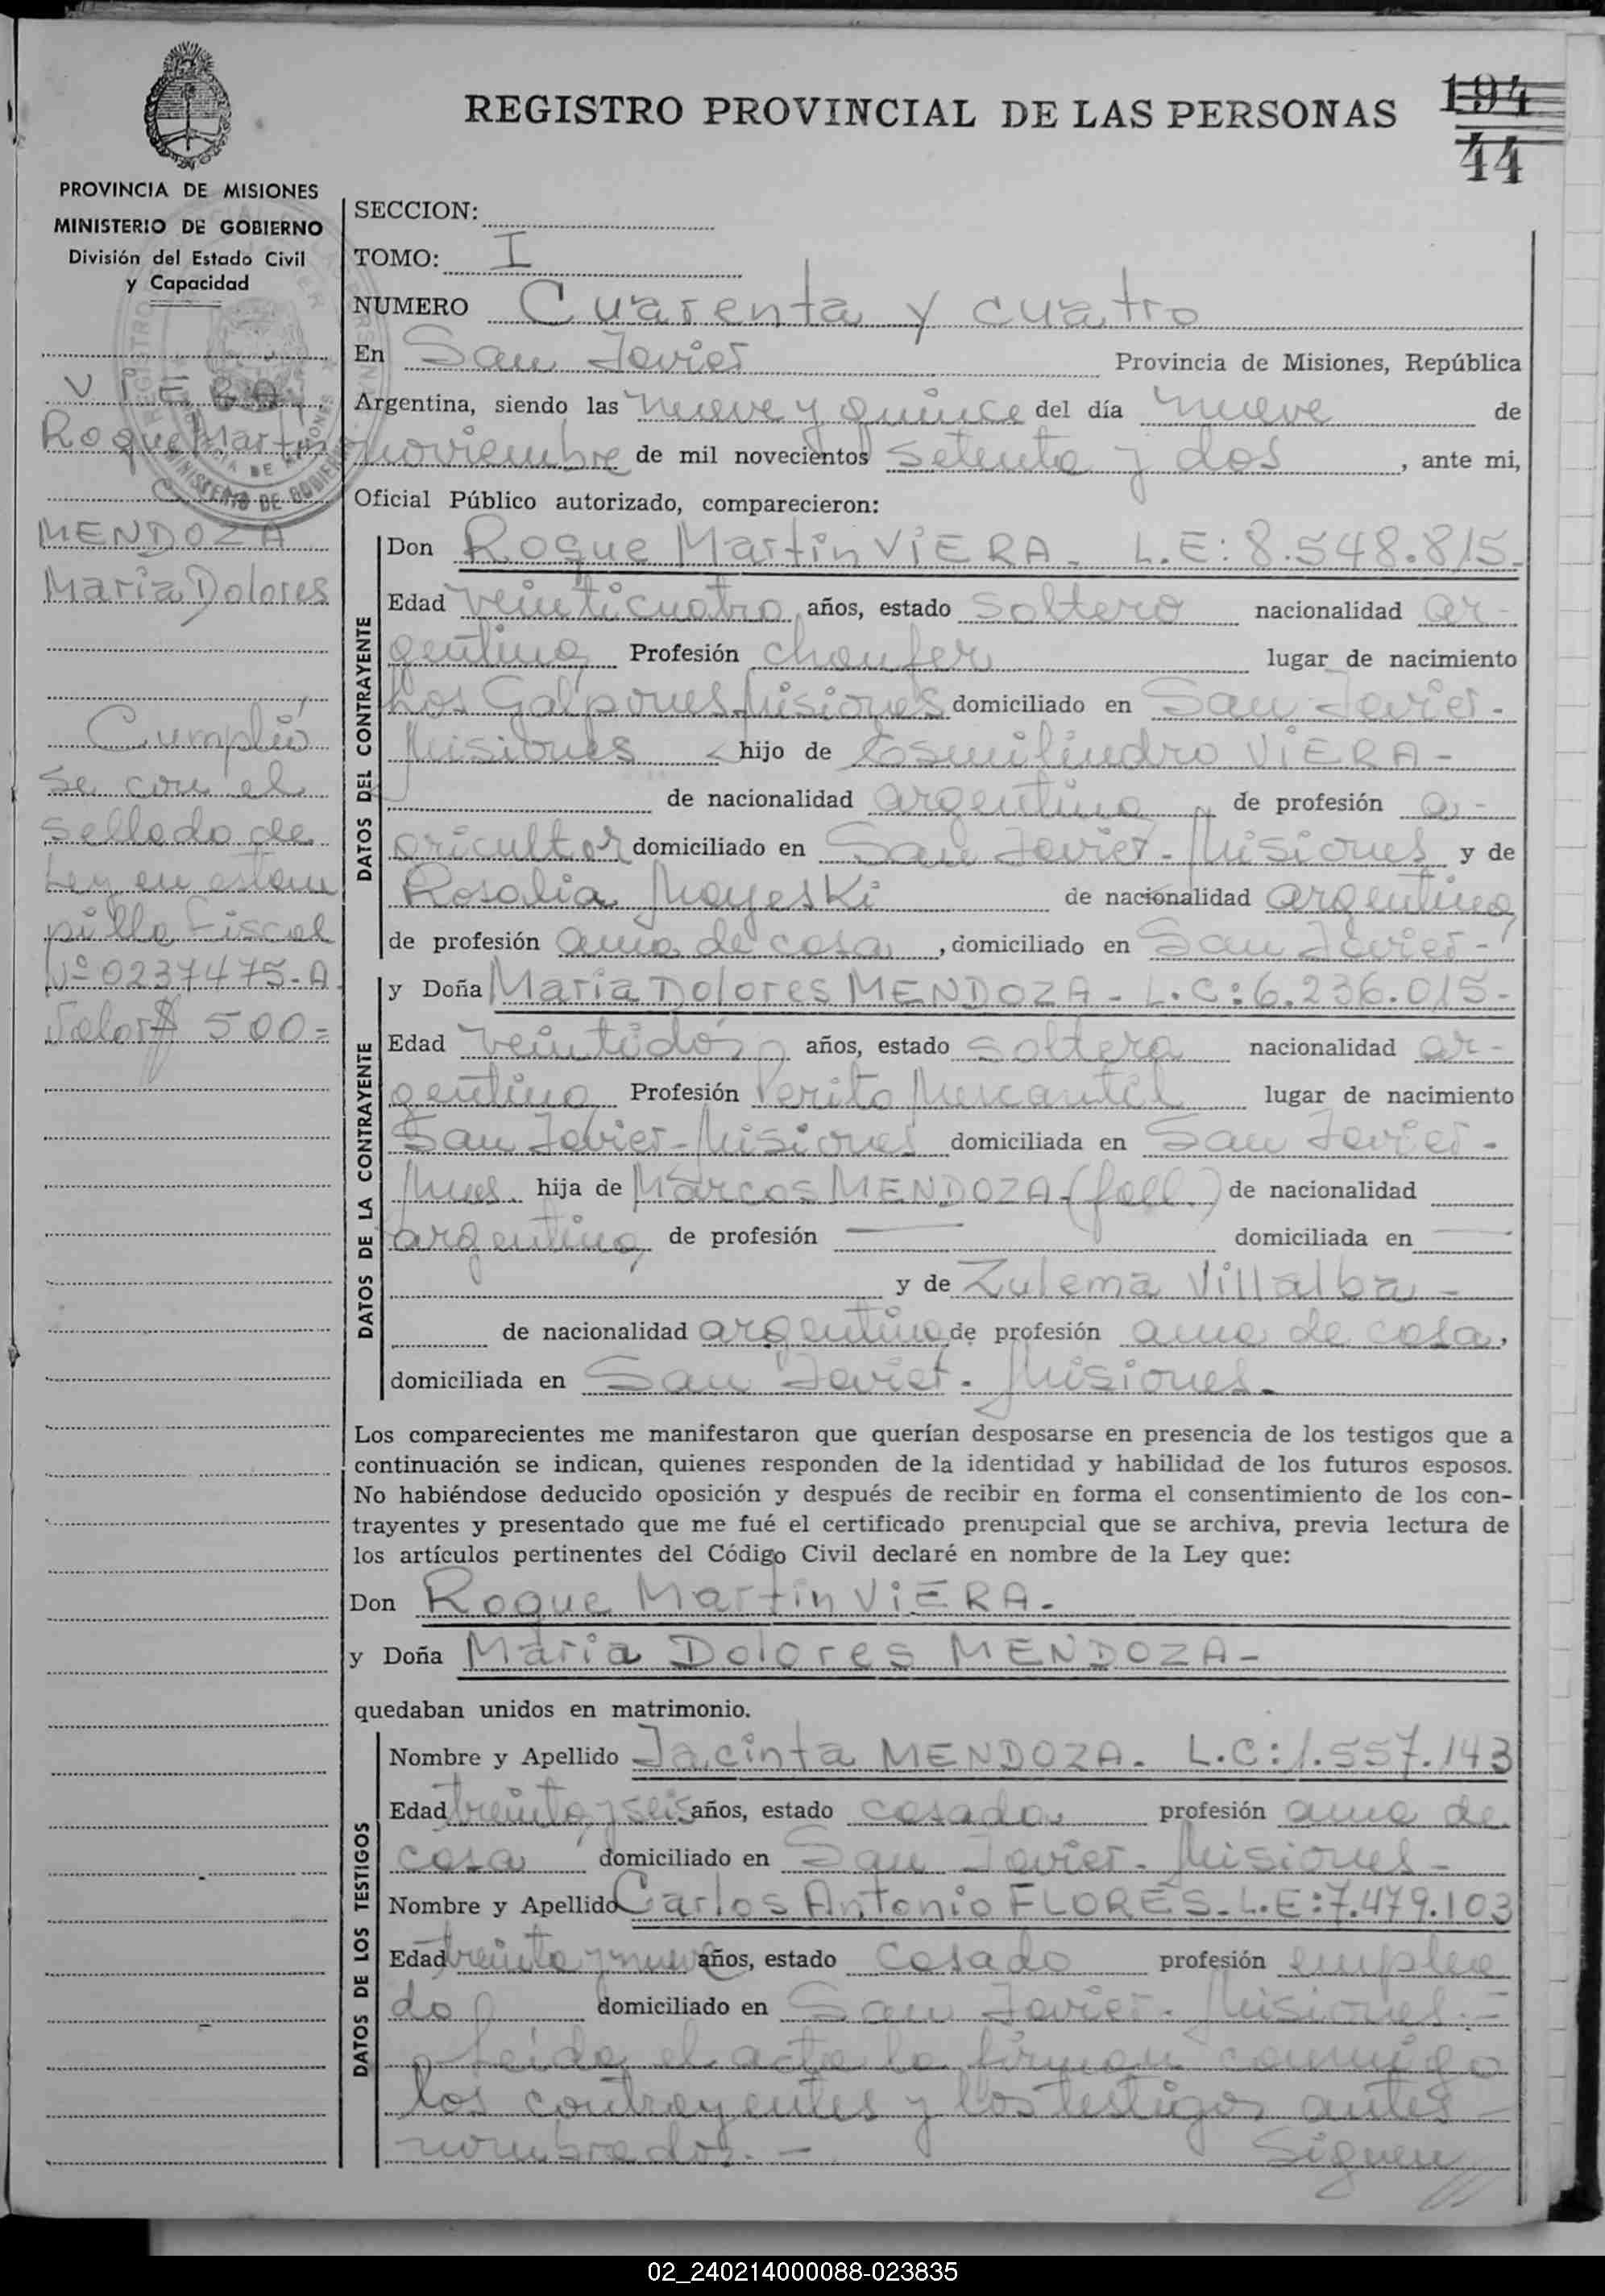 REGISTRO PROVINCIAL DE LAS PERSONAS
194
44
PROVINCIA DE MISIONES
MINISTERIO DE GOBIERNO
División del Estado Civil
y Capacidad
VIERA,
Roque Martin
C
MENDOZA
Maria Dolores
Cumplió
se con el
sellado de
Ley en estam
pilla fiscal
Nº 0237475-A.
Valor $ 500=
SECCION:
TOMO: I
NUMERO Cuarenta y cuatro
En San Javier Provincia de Misiones, República
Argentina, siendo las nueve y quince del día nueve de
noviembre de mil novecientos setenta y dos, ante mi,
Oficial Público autorizado, comparecieron:
DATOS DEL CONTRAYENTE
Don Roque Martin ViERA - L.E: 8.548.815-
Edad veinticuatro años, estado soltero nacionalidad ar-
gentina, Profesión choufer lugar de nacimiento
Los Galpones Misiones domiciliado en San Javier-
Misiones hijo de Esmilindro ViERA -
de nacionalidad argentina, de profesión a-
gricultor domiciliado en San Javier-Misiones y de
Rosalia Mayeski de nacionalidad argentina,
de profesión ama de casa, domiciliado en San Javier-
DATOS DE LA CONTRAYENTE
y Doña Maria Dolores MENDOZA - L.C: 6.236.015-
Edad veintidós, años, estado soltera nacionalidad ar-
gentina, Profesión Perito Mercantil lugar de nacimiento
San Javier-Misiones domiciliada en San Javier-
Mnes. hija de Marcos MENDOZA-(fall.) de nacionalidad
argentina, de profesión — domiciliada en —
y de Zulema Villalba -
de nacionalidad argentina de profesión ama de casa,
domiciliada en San Javier - Misiones.
Los comparecientes me manifestaron que querían desposarse en presencia de los testigos que a
continuación se indican, quienes responden de la identidad y habilidad de los futuros esposos.
No habiéndose deducido oposición y después de recibir en forma el consentimiento de los con-
trayentes y presentado que me fué el certificado prenupcial que se archiva, previa lectura de
los artículos pertinentes del Código Civil declaré en nombre de la Ley que:
Don Roque Martin ViERA -
y Doña Maria Dolores MENDOZA -
quedaban unidos en matrimonio.
DATOS DE LOS TESTIGOS
Nombre y Apellido Jacinta MENDOZA. L.C: 1.557.143
Edad treinta y seis años, estado casada, profesión ama de
casa domiciliado en San Javier - Misiones -
Nombre y Apellido Carlos Antonio FLORES - L.E: 7.479.103
Edad treinta y nueve años, estado casado profesión emplea
do domiciliado en San Javier - Misiones. -
Leida el acta la firman conmigo
los contrayentes y los testigos antes
nombrados. - Siguen //
02_240214000088-023835